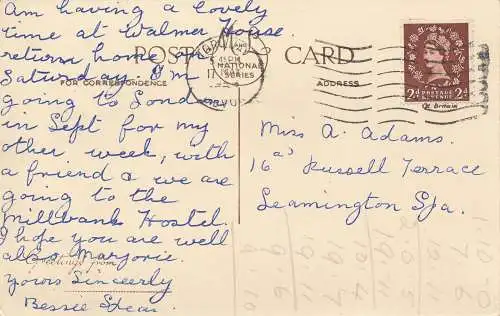 am having a lovely
time at Walmer House
return home on
Saturday. I'm
going to London
in Sept for my
other week, with
a friend & we are
going to the
Millbank Hostel.
I hope you are well
also Marjorie.
Greetings from
Yours Sincerly
Bessie
POST CARD
NATIONAL
SERIES
FOR CORRESPONDENCE
ADDRESS
2d POSTAGE REVENUE 2d
Gt. Britain
Miss A. Adams.
16a Russell Terrace
Leamington Spa.